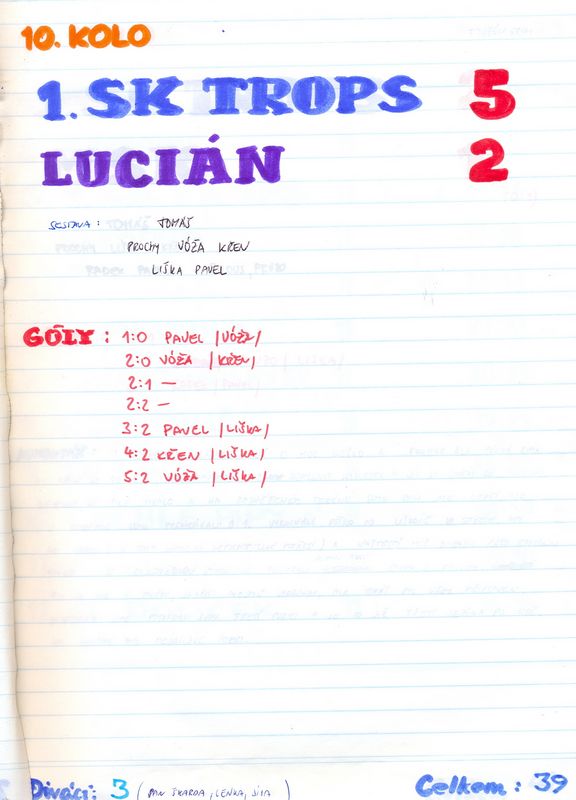 10. KOLO
1. SK TROPS 5
LUCIÁN 2
SESTAVA: TOMÁŠ
PROCHY VÓŽA KŘEN
LIŠKA PAVEL
GÓLY: 1:0 PAVEL /VÓŽA/
2:0 VÓŽA /KŘEN/
2:1 —
2:2 —
3:2 PAVEL /LIŠKA/
4:2 KŘEN /LIŠKA/
5:2 VÓŽA /LIŠKA/
Diváci: 3 (PAN ŠKARDA, LENKA, )
Celkem: 39